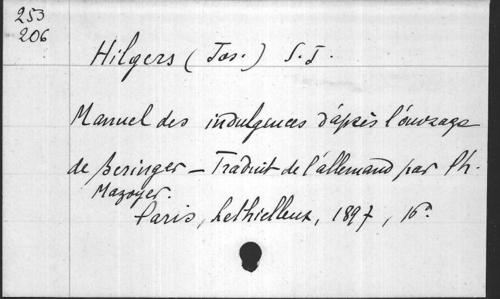 253
206
Hilgers (Jos.) S.J.
Manuel des indulgences d'après l'ouvrage
de Beringer – Traduit de l'allemand par Ph.
Mazoyer.
Paris, Lethielleux, 1897, 16°.